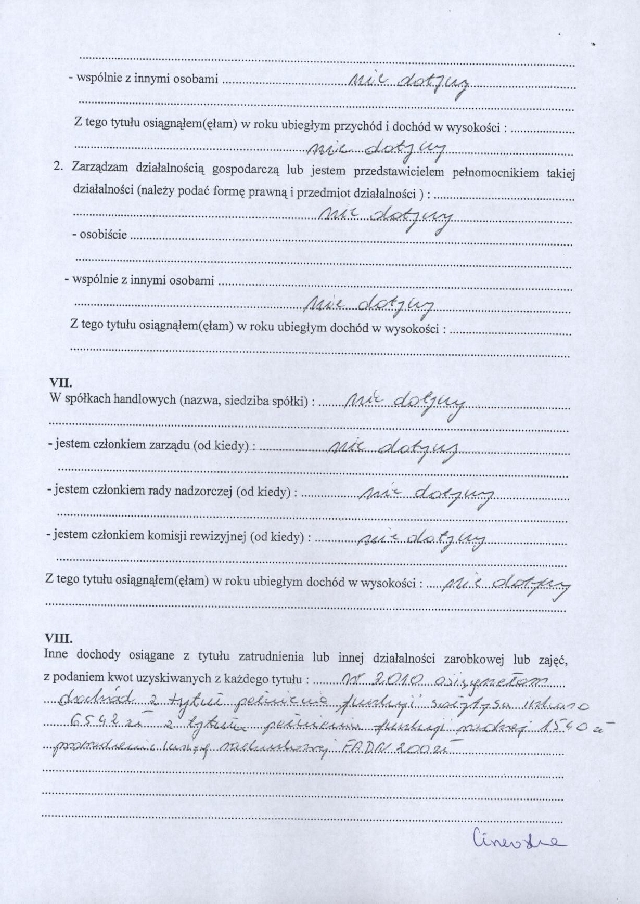 - wspólnie z innymi osobami nie dotyczy
Z tego tytułu osiągnąłem(ęłam) w roku ubiegłym przychód i dochód w wysokości :
nie dotyczy
2. Zarządzam działalnością gospodarczą lub jestem przedstawicielem pełnomocnikiem takiej
działalności (należy podać formę prawną i przedmiot działalności ) :
nie dotyczy
- osobiście
- wspólnie z innymi osobami
nie dotyczy
Z tego tytułu osiągnąłem(ęłam) w roku ubiegłym dochód w wysokości :
VII.
W spółkach handlowych (nazwa, siedziba spółki) : nie dotyczy
- jestem członkiem zarządu (od kiedy) : nie dotyczy
- jestem członkiem rady nadzorczej (od kiedy) : nie dotyczy
- jestem członkiem komisji rewizyjnej (od kiedy) : nie dotyczy
Z tego tytułu osiągnąłem(ęłam) w roku ubiegłym dochód w wysokości : nie dotyczy
VIII.
Inne dochody osiągane z tytułu zatrudnienia lub innej działalności zarobkowej lub zajęć,
z podaniem kwot uzyskiwanych z każdego tytułu : w 2010 osiągnęłam
dochód z tytuł pełnienia funkcji sołtysa
6592 zł z tytułu pełnienia funkcji 1540 zł
FADN 200 zł